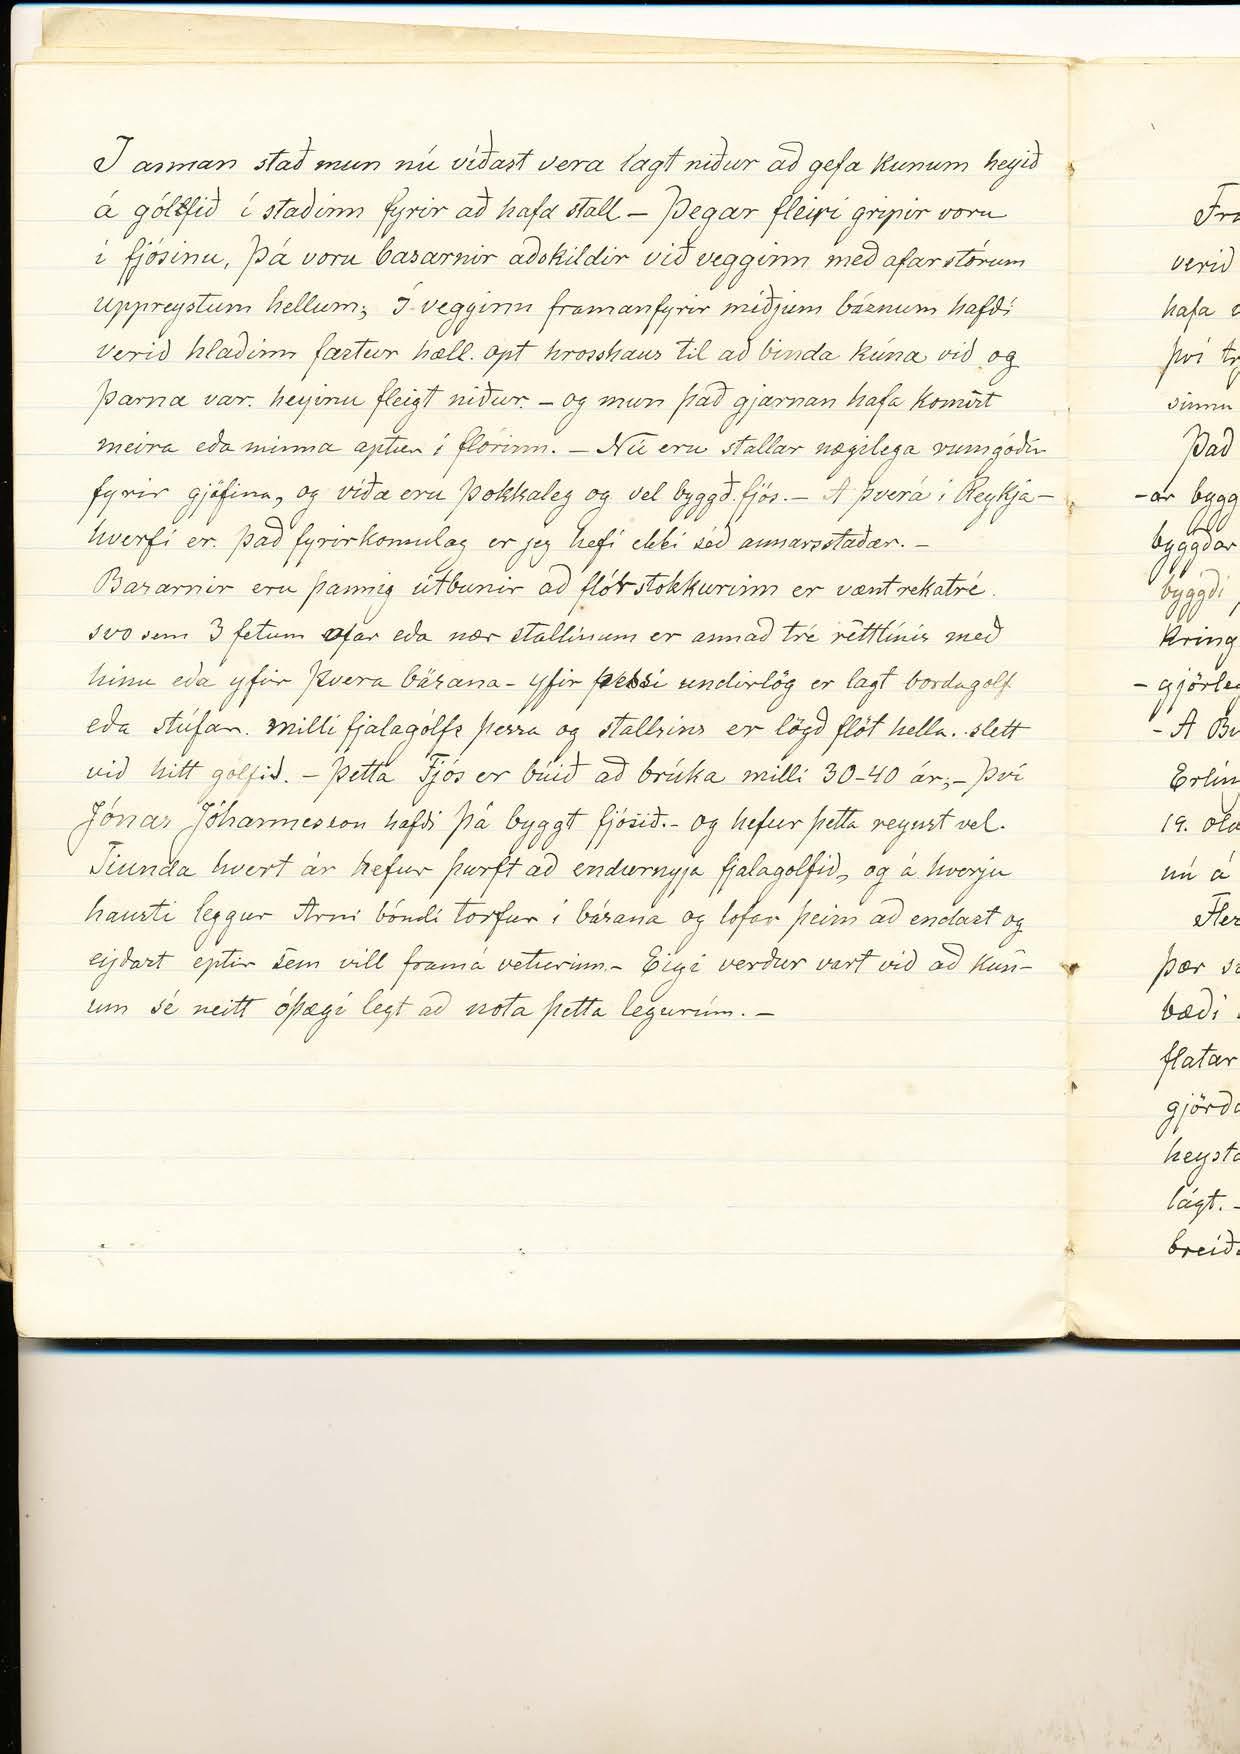 I annan stað mun nú víðast vera lagt niður að gefa kunum heyið
á gólfið í staðinn fyrir að hafa stall – Þegar fleiri gripir voru
i fjósinu, þá voru basarnir aðskildir við vegginn með afarstórum
uppreystum hellum; Í vegginn framanfyrir miðjum básnum hafði
verið hlaðinn fastur hæll. opt hrosshaus til að binda kúna við og
þarna var. heyinu fleigt niður. – og mun það gjarnan hafa komist
meira eða minna aptur í flórinn. – Nú eru stallar nægilega rumgóðir
fyrir gjöfina, og víða eru þokkaleg og vel byggð fjós. – A þverá i Reykja-
hverfi er. það fyrirkomulag er jeg hefi ekki séð annarsstaðar. –
Basarnir eru þannig útbunir að flórstokkurinn er vænt rekatré.
svo sem 3 fetum ofar eða nær stallinum er annað tré réttlínis með
hinu eða yfir þvera básana – yfir þessi undirlög er lagt bordagolf
eða stúfar. milli fjalagólfs þessa og stallsins er lögð flöt hella. slett
við hitt golfið. – Þetta Fjós er búið að brúka milli 30-40 ár; – því
Jónas Jóhannesson hafði þá byggt fjósið. – og hefur þetta reynst vel.
Tiunda hvert ár hefur þurft að endurnyja fjalagolfið, og á hverju
hausti leggur Arni bóndi torfur i básana og lofar þeim að endast og
eyðast eptir sem vill framá veturinn – Eigi verður vart við að kún-
um sé neitt óþægi legt að nota þetta legurúm. –
Fra
verið
hafa
því
sinnu
Það
-ar bygg
byggðar
byggði
kring
- gjörleg
- A
Erlin
19.
nú á
Fler
þær
bæði
flatar
gjörð
heyst
lágt. -
breið